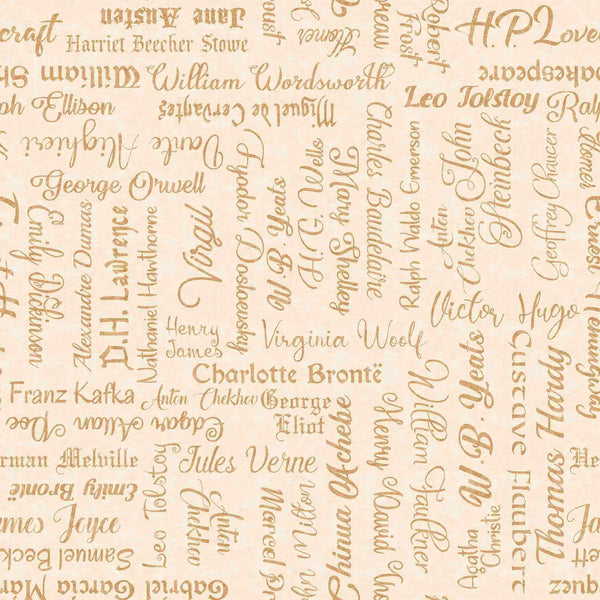 craft
Jane Austen
Harriet Beecher Stowe
oust
Homer
reau
Robert
Frost
H.P. Lovec
William Sh
William Wordsworth
akespeare
ph Ellison
Miguel de Cervantes
Leo Tolstoy
Ralp
Dante Alighieri
George Orwell
Fyodor Dostoevsky
W. B. Yeats
H.G. Wells
Mary Shelley
Charles Baudelaire
Ralph Waldo Emerson
Anton
Chekhov
John
Steinbeck
Geoffrey Chaucer
Homer
Ernest Hemingway
Emily Dickinson
Alexandre Dumas
D.H. Lawrence
Nathaniel Hawthorne
Virgil
Henry
James
Virginia Woolf
Victor Hugo
Charlotte Brontë
Franz Kafka
Anton Chekhov
George
Eliot
Edgar Allan Poe
rman Melville
Jules Verne
Emily Brontë
Leo Tolstoy
Anton
Chekhov
Marcel Pr
Milton
Chinua Achebe
Henry David Tho
William Faulkner
W. B. Yeats
Agatha
Christie
Gustave Flaubert
Thomas Hardy
He
ames Joyce
Ja
Samuel Beck
ett
Gabriel Garcia Mar
quez